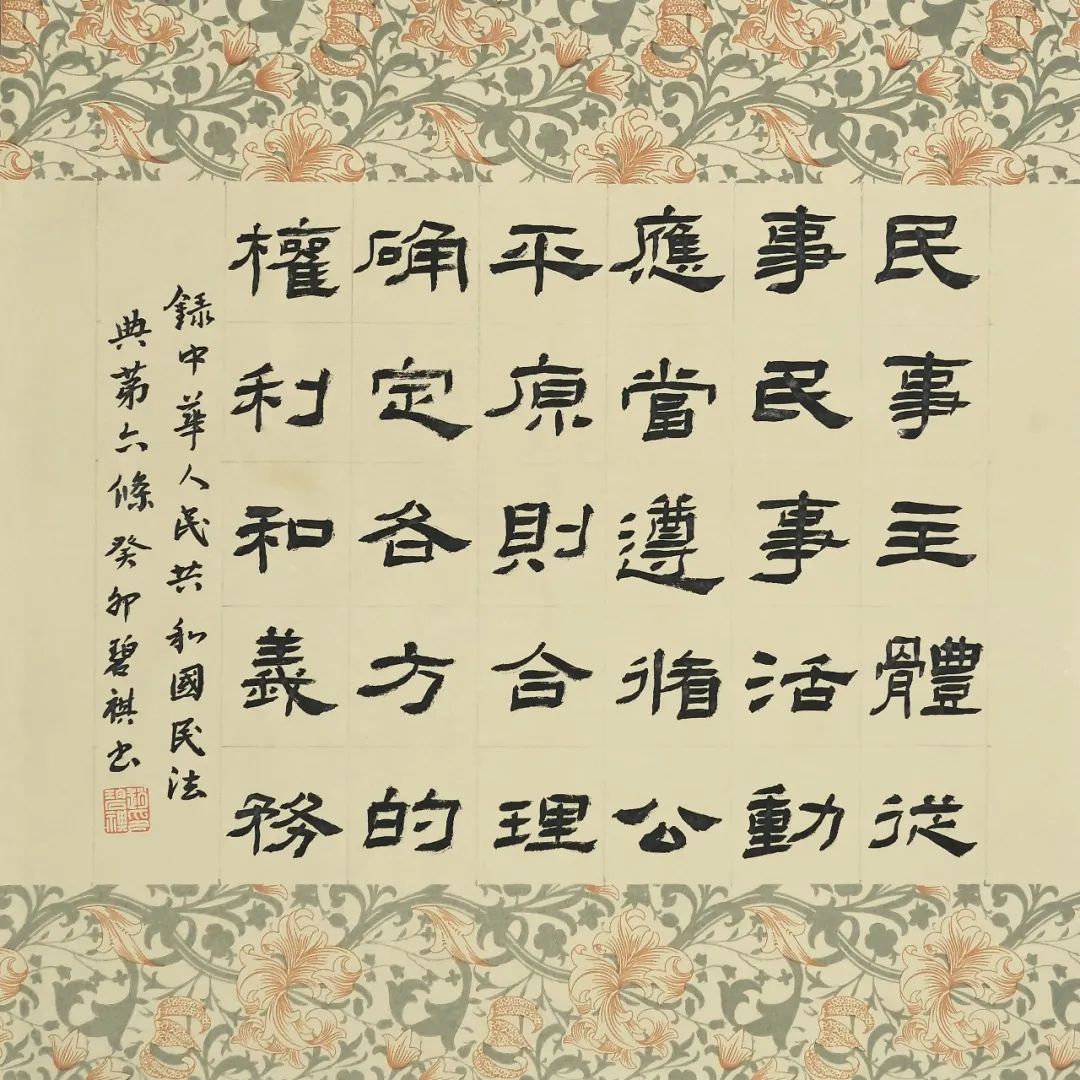 民事主體從
事民事活動
應當遵循公
平原則合理
确定各方的
權利和義務
錄中華人民共和國民法
典第六條癸卯碧祺书